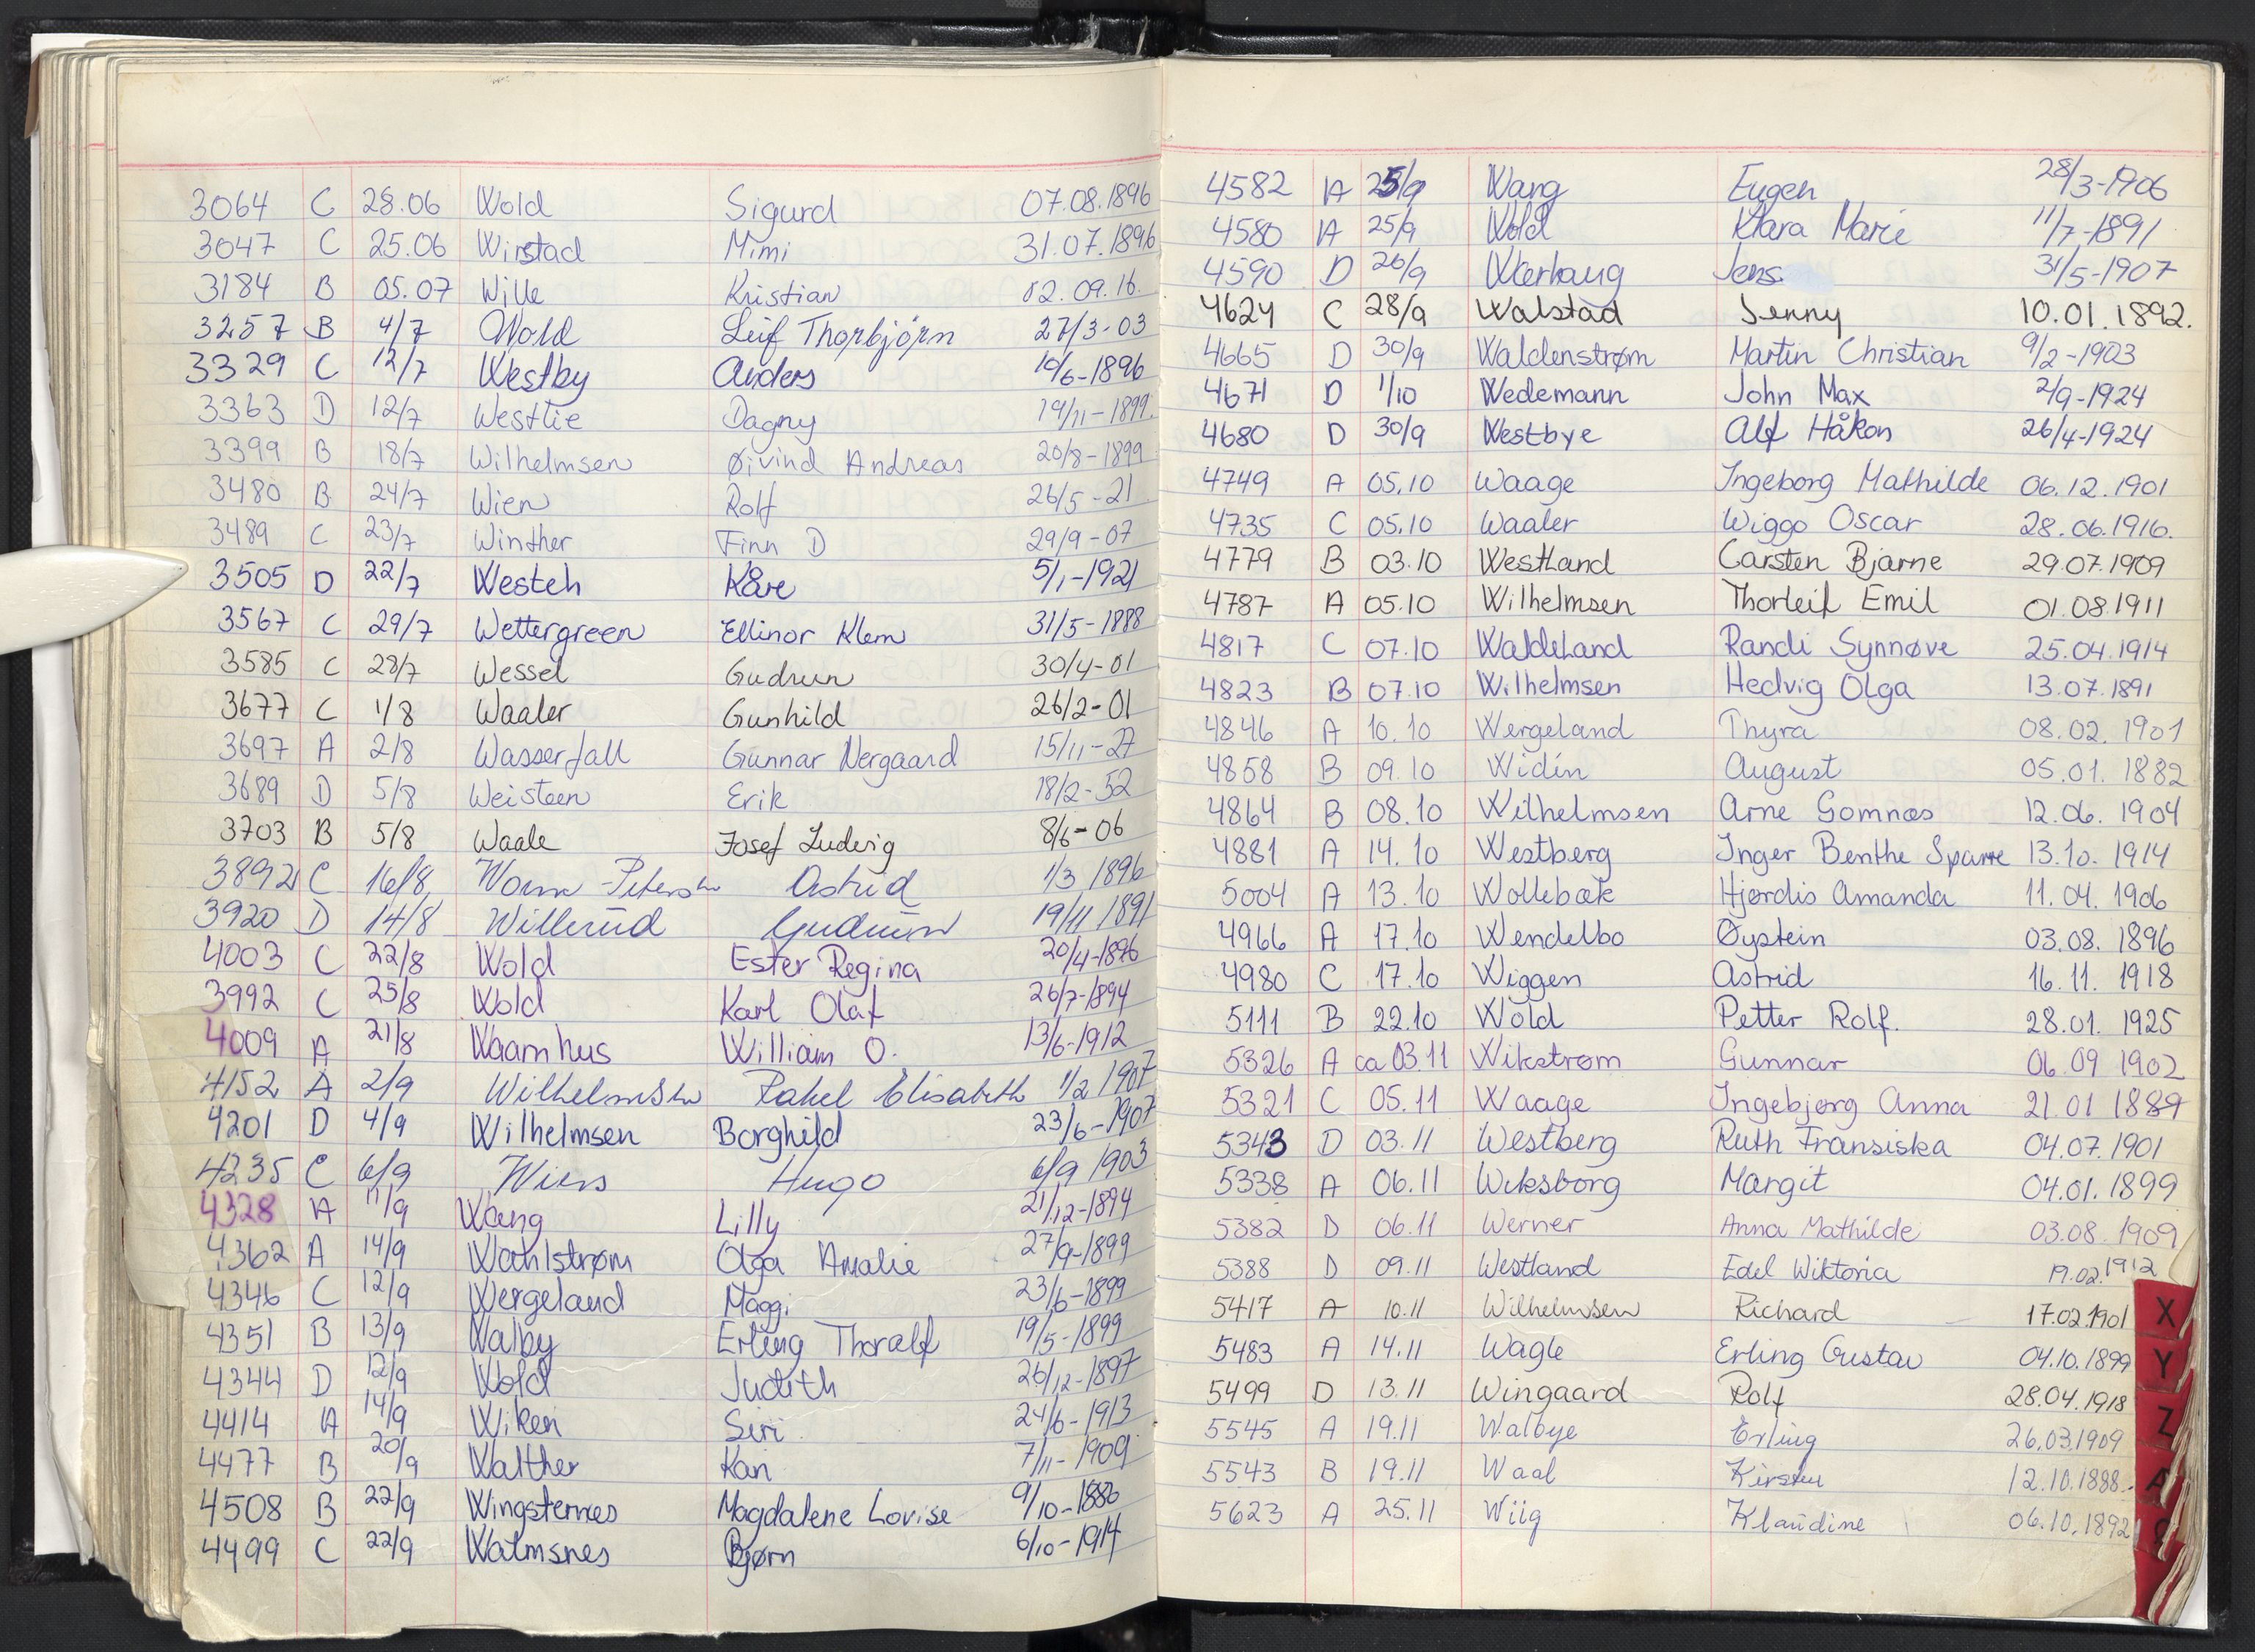 3064 C 28.06 Wold Sigurd 07.08.1896
3047 C 25.06 Wirstad Mimi 31.07.1896
3184 B 05.07 Wille Kristian 02.09.16.
3257 B 4/7 Wold Leif Thorbjörn 27/3-03
3329 C 12/7 Westby Anders 10/6-1896
3363 D 12/7 Westlie Dagny 19/11-1899.
3399 B 18/7 Wilhelmsen Øivind Andreas 20/8-1899
3480 B 24/7 Wien Rolf 26/5-21
3489 C 23/7 Winther Finn D 29/9-07
3505 D 22/7 Westeh Kåre 5/1-1921
3567 C 29/7 Wettergreen Ellinor Klem 31/5-1888
3585 C 28/7 Wessel Gudrun 30/4-01
3677 C 1/8 Waaler Gunhild 26/2-01
3697 A 2/8 Wasserfall Gunnar Nergaard 15/11-27
3689 D 5/8 Weisteen Erik 18/2-52
3703 B 5/8 Waale Josef Ludvig 8/6-06
3892 C 16/8 Worm-Petersen Astrid 1/3 1896
3920 D 14/8 Willerud Gudrun 19/11 1891
4003 C 22/8 Wold Ester Regina 20/4-1896
3992 C 25/8 Wold Karl Olaf 26/7-1894
4009 A 21/8 Waamhus William O. 13/6-1912
4152 A 2/9 Wilhelmsen Rakel Elisabeth 1/2 1907
4201 D 4/9 Wilhelmsen Borghild 23/6-1907
4235 C 6/9 Wiers Hugo 6/9 1903
4328 A 11/9 Wang Lilly 21/12-1894
4362 A 14/9 Wahlstrøm Olga Amalie 27/9-1899
4346 C 12/9 Wergeland Maggi 23/6-1899
4351 B 13/9 Walby Erling Thoralf 19/5-1899
4344 D 12/9 Wold Judith 26/12-1897
4414 A 14/9 Wiken Siri 24/6-1913
4477 B 20/9 Walther Kari 7/11-1909
4508 B 22/9 Wingsternes Magdalene Lovise 9/10-1886
4499 C 22/9 Walmsnes Bjørn 6/10-1914
4582 A 25/9 Wang Eugen 28/3-1906
4580 A 25/9 Wold Klara Marie 11/7-1891
4590 D 26/9 Wærhaug Jens 31/5-1907
4624 C 28/9 Walstad Jenny 10.01.1892.
4665 D 30/9 Waldenstrøm Martin Christian 9/2-1903
4671 D 1/10 Wedemann John Max 2/9-1924
4680 D 30/9 Westbye Alf Håkon 26/4-1924
4749 A 05.10 Waage Ingeborg Mathilde 06.12.1901
4735 C 05.10 Waaler Wiggo Oscar 28.06.1916.
4779 B 03.10 Westland Carsten Bjarne 29.07.1909
4787 A 05.10 Wilhelmsen Thorleif Emil 01.08.1911
4817 C 07.10 Waldeland Randi Synnøve 25.04.1914
4823 B 07.10 Wilhelmsen Hedvig Olga 13.07.1891
4846 A 10.10 Wergeland Thyra 08.02.1901
4858 B 09.10 Widín August 05.01.1882
4864 B 08.10 Wilhelmsen Arne Gomnæs 12.06.1904
4881 A 14.10 Westberg Inger Benthe Sparre 13.10.1914
5004 A 13.10 Wollebæk Hjørdis Amanda 11.04.1906
4966 A 17.10 Wendelbo Øystein 03.08.1896
4980 C 17.10 Wiggen Astrid 16.11.1918
5111 B 22.10 Wold Petter Rolf. 28.01.1925
5326 A ca 03.11 Wikstrøm Gunnar 06.09 1902
5321 C 05.11 Waage Ingebjørg Anna 21.01 1889
5343 D 03.11 Westberg Ruth Fransiska 04.07.1901
5338 A 06.11 Wiksborg Margit 04.01.1899
5382 D 06.11 Werner Anna Mathilde 03.08.1909
5388 D 09.11 Westland Edel Wiktoria 19.02.1912
5417 A 10.11 Wilhelmsen Richard 17.02.1901
X
5483 A 14.11 Wagle Erling Gustav 04.10.1899
Y
5499 D 13.11 Wingaard Rolf 28.04.1918
Z
5545 A 19.11 Walbye Erling 26.03.1909
5543 B 19.11 Waal Kirsten 12.10.1888.
5623 A 25.11 Wiig Klaudine 06.10.1892